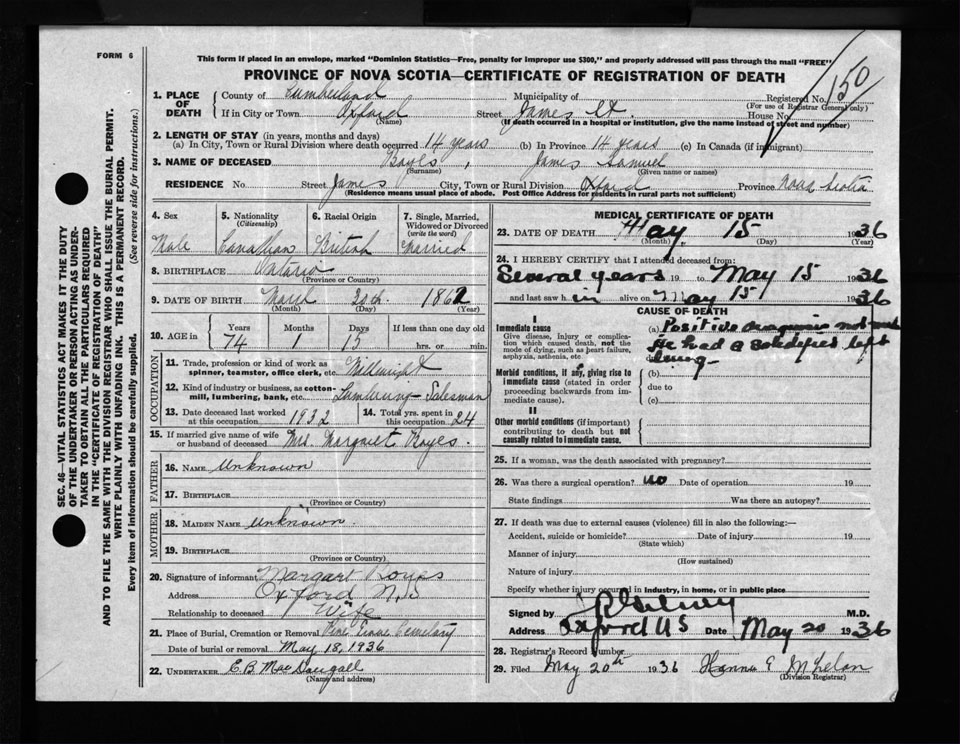 FORM 6
This form if placed in an envelope, marked "Dominion Statistics—Free, penalty for improper use $300," and properly addressed will pass through the mail "FREE"
PROVINCE OF NOVA SCOTIA—CERTIFICATE OF REGISTRATION OF DEATH
150
1. PLACE OF DEATH
County of Cumberland Municipality of Registered No.
(For use of Registrar General only)
If in City or Town Oxford Street James St. House No.
(Name) (If death occurred in a hospital or institution, give the name instead of street and number)
2. LENGTH OF STAY (in years, months and days)
(a) In City, Town or Rural Division where death occurred 14 years (b) In Province 14 years (c) In Canada (if immigrant)
3. NAME OF DECEASED James Samuel
(Surname) (Given name or names)
RESIDENCE No. Street James City, Town or Rural Division Oxford Province Nova Scotia
(Residence means usual place of abode. Post Office Address for residents in rural parts not sufficient)
4. Sex Male
5. Nationality (Citizenship) Canadian
6. Racial Origin British
7. Single, Married, Widowed or Divorced (write the word) Married
8. BIRTHPLACE Ontario
(Province or Country)
9. DATE OF BIRTH March 30th. 1862
(Month) (Day) (Year)
10. AGE in Years Months Days If less than one day old
74 1 15 hrs. or min.
OCCUPATION
11. Trade, profession or kind of work as spinner, teamster, office clerk, etc. Millwright
12. Kind of industry or business, as cotton-mill, lumbering, bank, etc. Lumbering - Salesman
13. Date deceased last worked at this occupation 1932
14. Total yrs. spent in this occupation 24
15. If married give name of wife or husband of deceased Mrs. Margaret
FATHER
16. NAME Unknown
17. BIRTHPLACE
(Province or Country)
MOTHER
18. MAIDEN NAME unknown.
19. BIRTHPLACE
(Province or Country)
20. Signature of informant
Address Oxford N.S.
Relationship to deceased Wife
21. Place of Burial, Cremation or Removal Pine Grove Cemetary
Date of burial or removal May 18, 1936
22. UNDERTAKER E B MacDougall
(Name and address)
MEDICAL CERTIFICATE OF DEATH
23. DATE OF DEATH May 15 1936
(Month) (Day) (Year)
24. I HEREBY CERTIFY that I attended deceased from:
Several years 19 to May 15 1936
and last saw h im alive on May 15 1936
CAUSE OF DEATH
I
Immediate cause
Give disease, injury or complication which caused death, not the mode of dying, such as heart failure, asphyxia, asthenia, etc
(a) Positive diagnosis not made
He had a solidified left
due to lung-
Morbid conditions, if any, giving rise to immediate cause (stated in order proceeding backwards from immediate cause).
(b)
due to
(c)
II
Other morbid conditions (if important) contributing to death but not causally related to immediate cause.
25. If a woman, was the death associated with pregnancy?
26. Was there a surgical operation? no Date of operation 19
State findings Was there an autopsy?
27. If death was due to external causes (violence) fill in also the following:—
Accident, suicide or homicide? Date of injury 19
(State which)
Manner of injury
(How sustained)
Nature of injury
Specify whether injury occurred in industry, in home, or in public place
Signed by M.D.
Address Oxford NS Date May 20 1936
28. Registrar's Record Number
29. Filed May 20th 1936
(Division Registrar)
SEC. 46—VITAL STATISTICS ACT MAKES IT THE DUTY
OF THE UNDERTAKER OR PERSON ACTING AS UNDER-
TAKER TO OBTAIN ALL THE PARTICULARS REQUIRED
IN THE "CERTIFICATE OF REGISTRATION OF DEATH"
AND TO FILE THE SAME WITH THE DIVISION REGISTRAR WHO SHALL ISSUE THE BURIAL PERMIT.
WRITE PLAINLY WITH UNFADING INK. THIS IS A PERMANENT RECORD.
Every item of information should be carefully supplied. (See reverse side for instructions.)